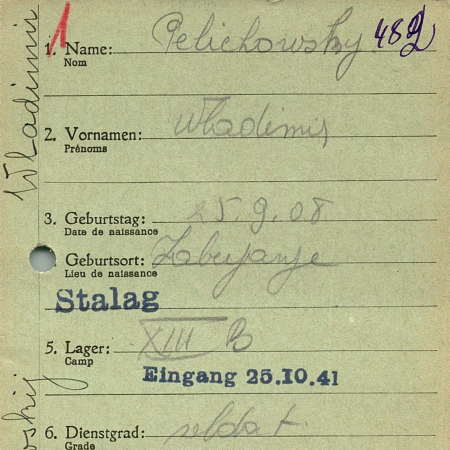 1
1. Name: Pelichowsky 482
Nom
Wladimir
2. Vornamen: Wladimir
Prénoms
3. Geburtstag: 25.9.08
Date de naissance
Geburtsort:
Lieu de naissance
Stalag
5. Lager: XIII B
Camp
Eingang 25.10.41
6. Dienstgrad: soldat.
Grade